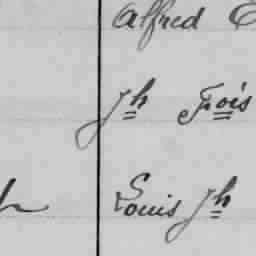 Alfred
Jh Fois
Louis Jh